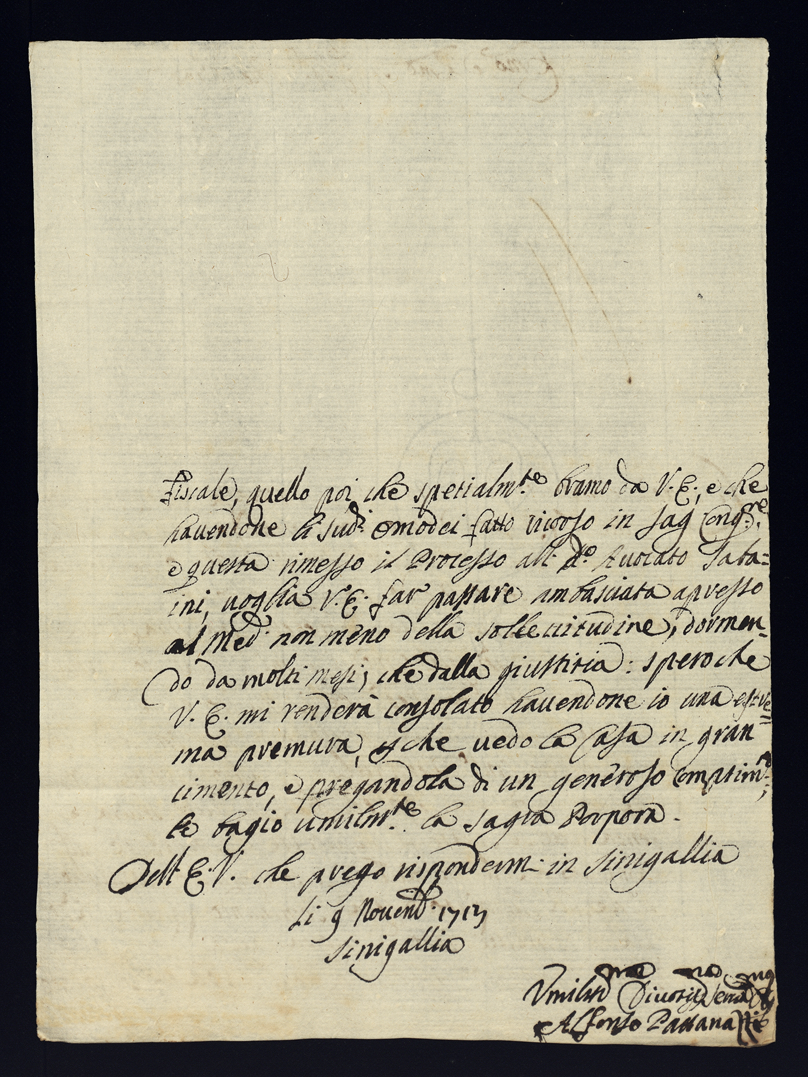 Fiscale, quello poi che spetialm.te bramo da V. E., e che
havendone li sud.i Omodei fatto ricorso in sag. Cong.ne,
e questa rimesso il Processo all. d.o Avocato Saba=
ini, voglia V. E. far passare ambasciata apresso
al Med. non meno della sollectitudine, dormen=
do da molti mesi, che dalla giustitia: spero che
V. E. mi renderà consolato havendone io una estre=
ma premura, che vedo la Casa in gran
cimento, e pregandola di un generoso
le bagio umilm.te la sagra Porpora.
Dell E. V. che prego rispondermi in Sinigallia
Li 9 Novemb. 1713
Sinigallia
Umiliss. Divotiss. Serv.
Alfonso